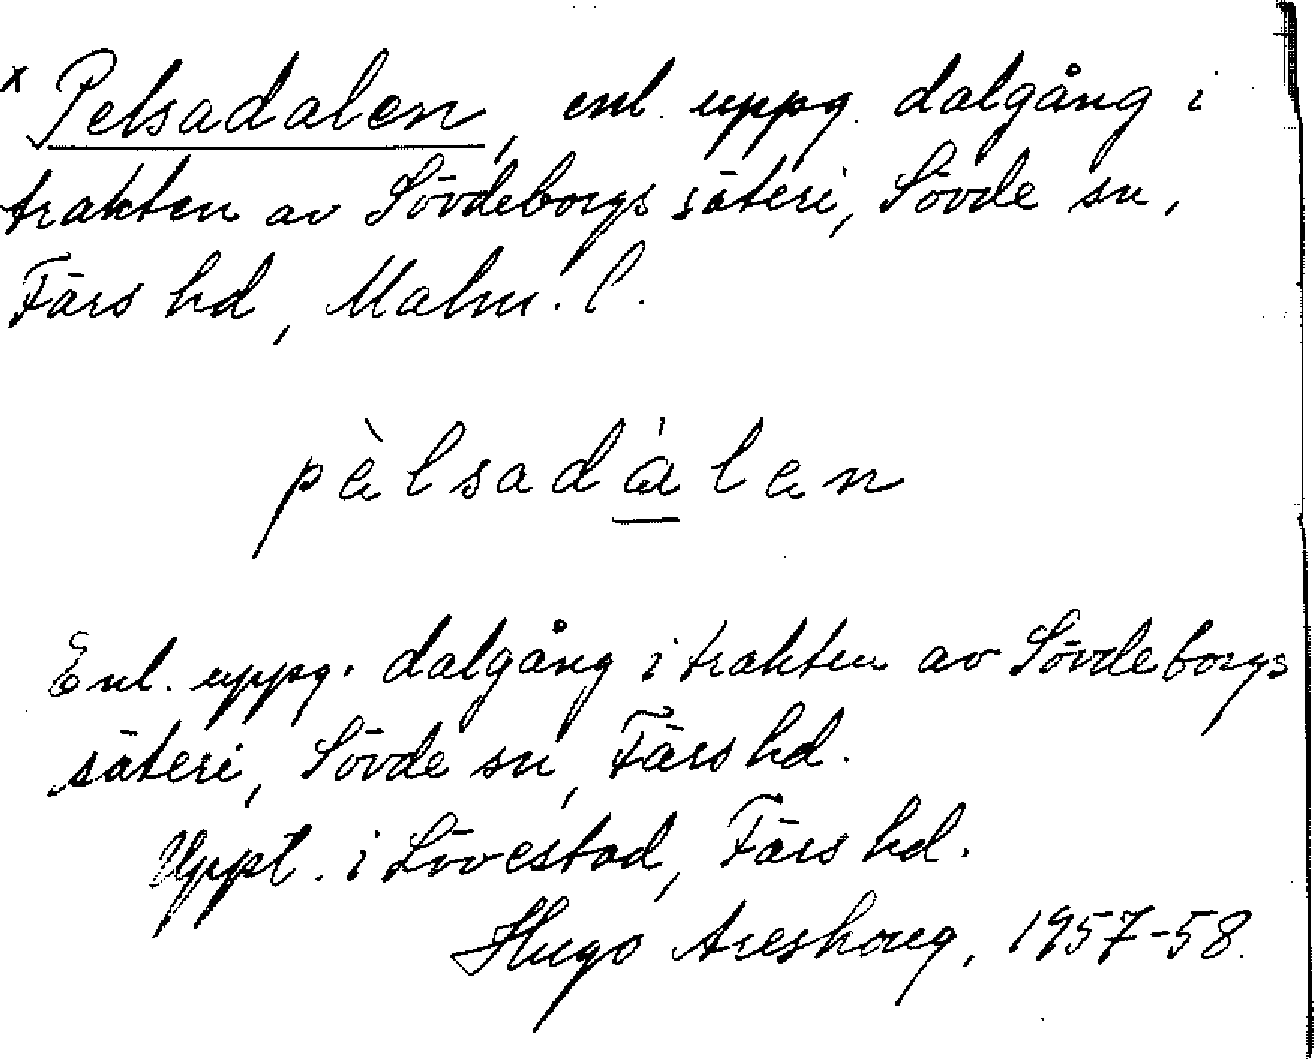 x Pelsadalen, enl. uppg. dalgång i
trakten av Sövdeborgs säteri, Sövde sn,
Färs hd, Malm. l.
pèlsadálen
Enl. uppg. dalgång i trakten av Sövdeborgs
säteri, Sövde sn, Färs hd.
Uppt. i Lövestad, Färs hd.
Hugo Areskoug, 1957-58.